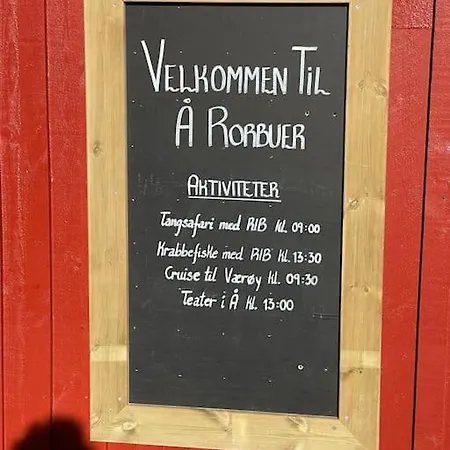 VELKOMMEN TIL
Å RORBUER
AKTIVITETER
Tangsafari med RIB kl. 09:00
Krabbefiske med RIB kl. 13:30
Cruise til Værøy kl. 09:30
Teater i Å kl. 13:00